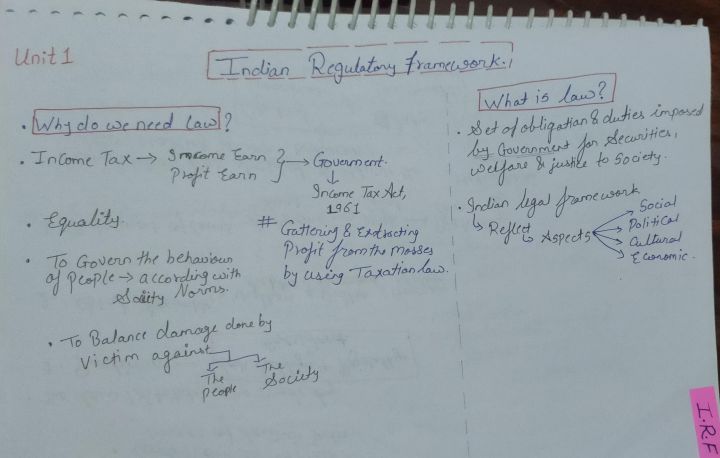 Unit 1
Indian Regulatory Framework.
• Why do we need Law?
• Income Tax → Income Earn
Profit Earn
→ Goverment.
↓
Income Tax Act,
1961
• Equality.
# Gattering & Extracting
Profit from the Masses
by using Taxation law.
• To Govern the behaviour
of People → according with
Society Norms.
• To Balance damage done by
Victim against
The
People
The
Society
What is law?
• Set of obligation & duties imposed
by Government for Securities,
welfare & justice to Society.
• Indian legal framework
↳ Reflect
↳ Aspects
Social
Political
Cultural
Economic.
I.R.F